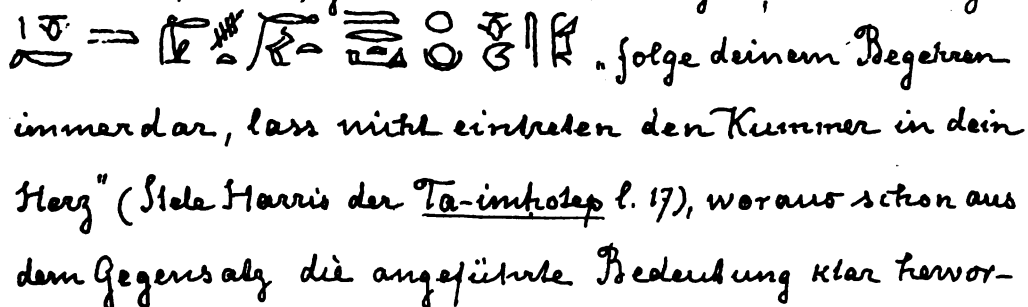 „folge deinem Begehren
immerdar, lass nicht eintreten den Kummer in dein
Herz" (Stele Harris der Ta-imhotep l. 17), woraus schon aus
dem Gegensatz die angeführte Bedeutung klar hervor-